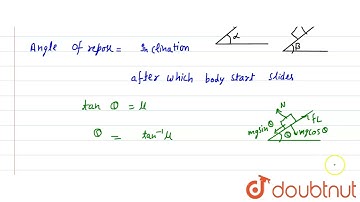 α
β
Angle Of repose = Inclination
after which body start slides
tan θ = μ
θ = tan⁻¹ μ
N
fL
mgsinθ
θ
mgcosθ
doubtnut